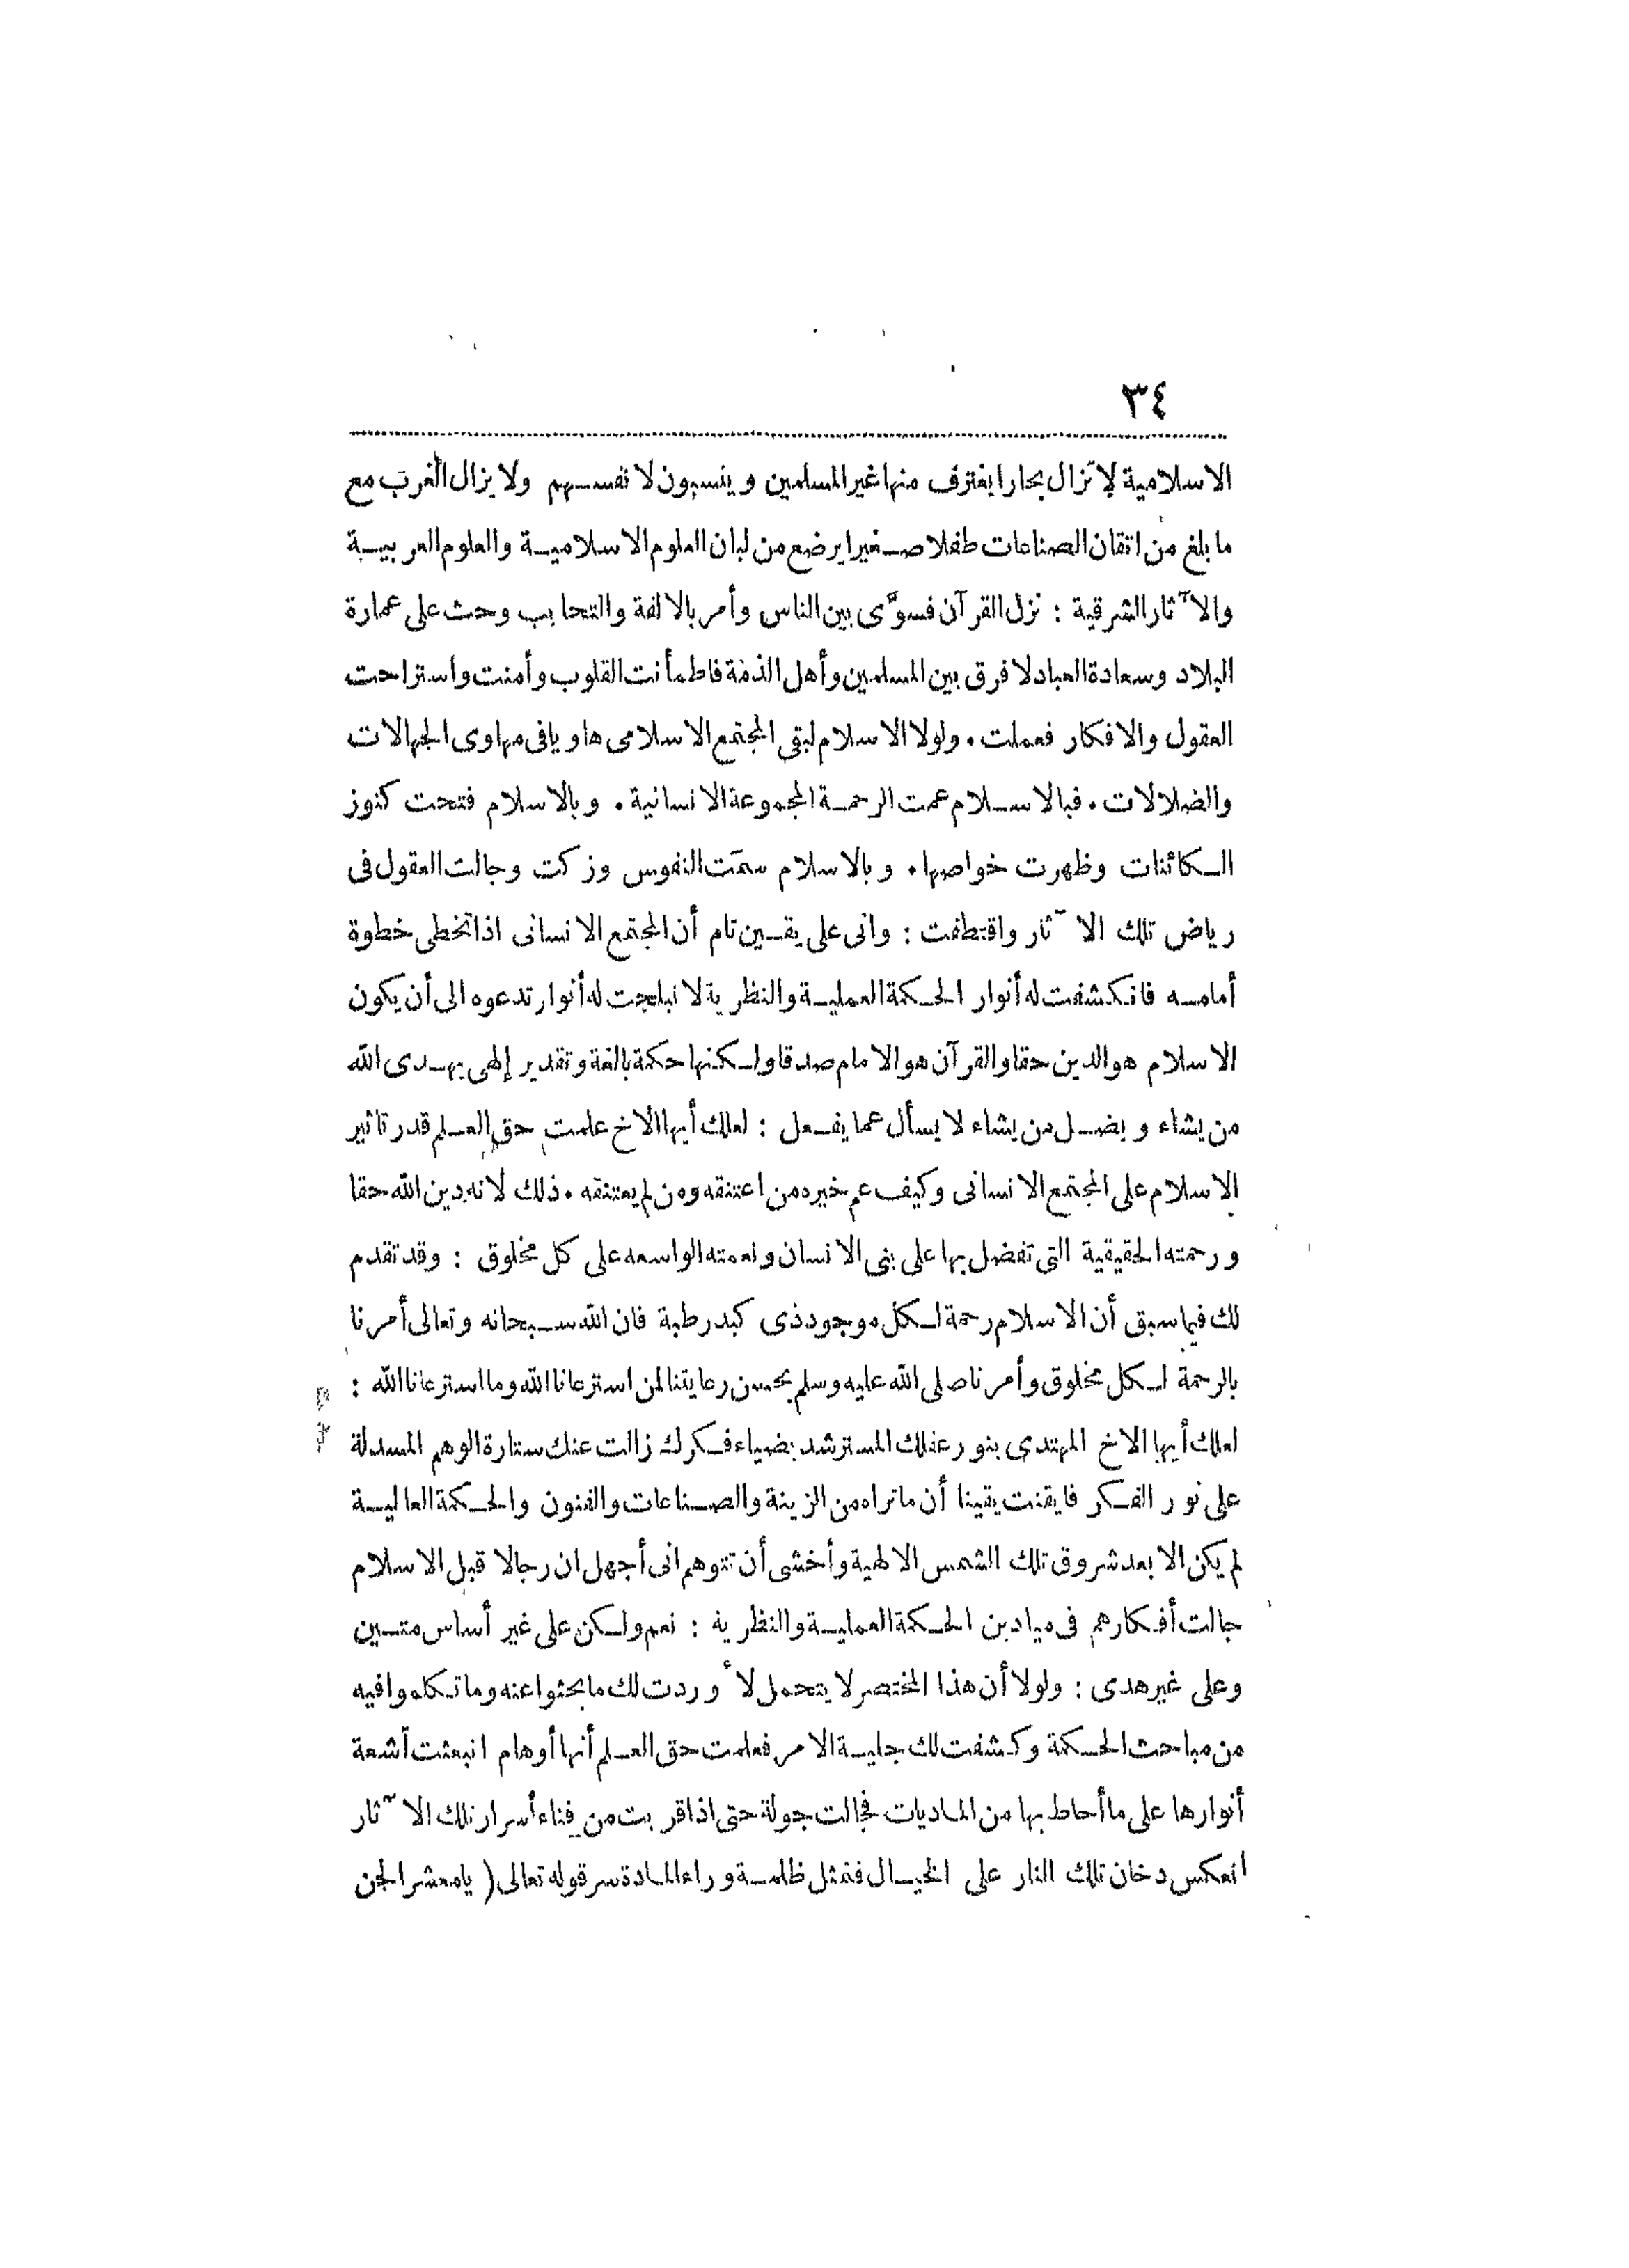 ٣٤
الاسلامية لا تزال بحارا يغترف منها غير المسلمين وينسبون لانفسهم ولا يزال الغرب مع
ما بلغ من اتقان الصناعات طفلا صغيرا يرضع من لبان العلوم الاسلامية والعلوم العربية
والآثار الشرقية : نزل القرآن فسوَّى بين الناس وأمر بالالفة والتحابب وحث على عمارة
البلاد وسعادة العباد لا فرق بين المسلمين وأهل الذمة فاطمأنت القلوب وأمنت واستراحت
العقول والافكار فعملت . ولولا الاسلام لبقى المجتمع الاسلامى هاويا فى مهاوى الجهالات
والضلالات . فبالاسلام عمت الرحمة المجموعة الانسانية . وبالاسلام فتحت كنوز
الكائنات وظهرت خواصها . وبالاسلام سمت النفوس وزكت وجالت العقول فى
رياض تلك الآثار واقتطفت : وانى على يقين تام أن المجتمع الانسانى اذا تخطى خطوة
أمامه فانكشفت له أنوار الحكمة العملية والنظرية لانبلجت له أنوار تدعوه الى أن يكون
الاسلام هو الدين حقا والقرآن هو الامام صدقا ولكنها حكمة بالغة وتقدير إلهى يهدى الله
من يشاء ويضل من يشاء لا يسأل عما يفعل : لعلك أيها الاخ علمت حق العلم قدر تاثير
الاسلام على المجتمع الانسانى وكيف عم خيره من اعتنقه ومن لم يعتنقه . ذلك لانه دين الله حقا
ورحمته الحقيقية التى تفضل بها على بنى الانسان ونعمته الواسعه على كل مخلوق : وقد تقدم
لك فيما سبق أن الاسلام رحمة لكل موجود ذى كبد رطبة فان الله سبحانه وتعالى أمرنا
بالرحمة لكل مخلوق وأمرنا صلى الله عليه وسلم بحسن رعايتنا لمن استرعانا الله وما استرعانا الله :
لعلك أيها الاخ المهتدى بنور عقلك المسترشد بضياء فكرك زالت عنك ستارة الوهم المسدلة
على نور الفكر فايقنت يقينا أن ما تراه من الزينة والصناعات والفنون والحكمة العالية
لم يكن الا بعد شروق تلك الشمس الالهية وأخشى أن تتوهم انى أجهل ان رجالا قبل الاسلام
جالت أفكارهم فى ميادين الحكمة العملية والنظرية : نعم ولكن على غير أساس متين
وعلى غير هدى : ولولا أن هذا المختصر لا يتحمل لأوردت لك ما بحثوا عنه وما تكلموا فيه
من مباحث الحكمة وكشفت لك جلية الامر فعلمت حق العلم أنها أوهام انبعثت أشعة
أنوارها على ما أحاط بها من الماديات فجالت جولة حتى اذا قربت من فناء أسرار تلك الآثار
انعكس دخان تلك النار على الخيال فمثل ظلمة وراء المادة سر قوله تعالى ( يا معشر الجن